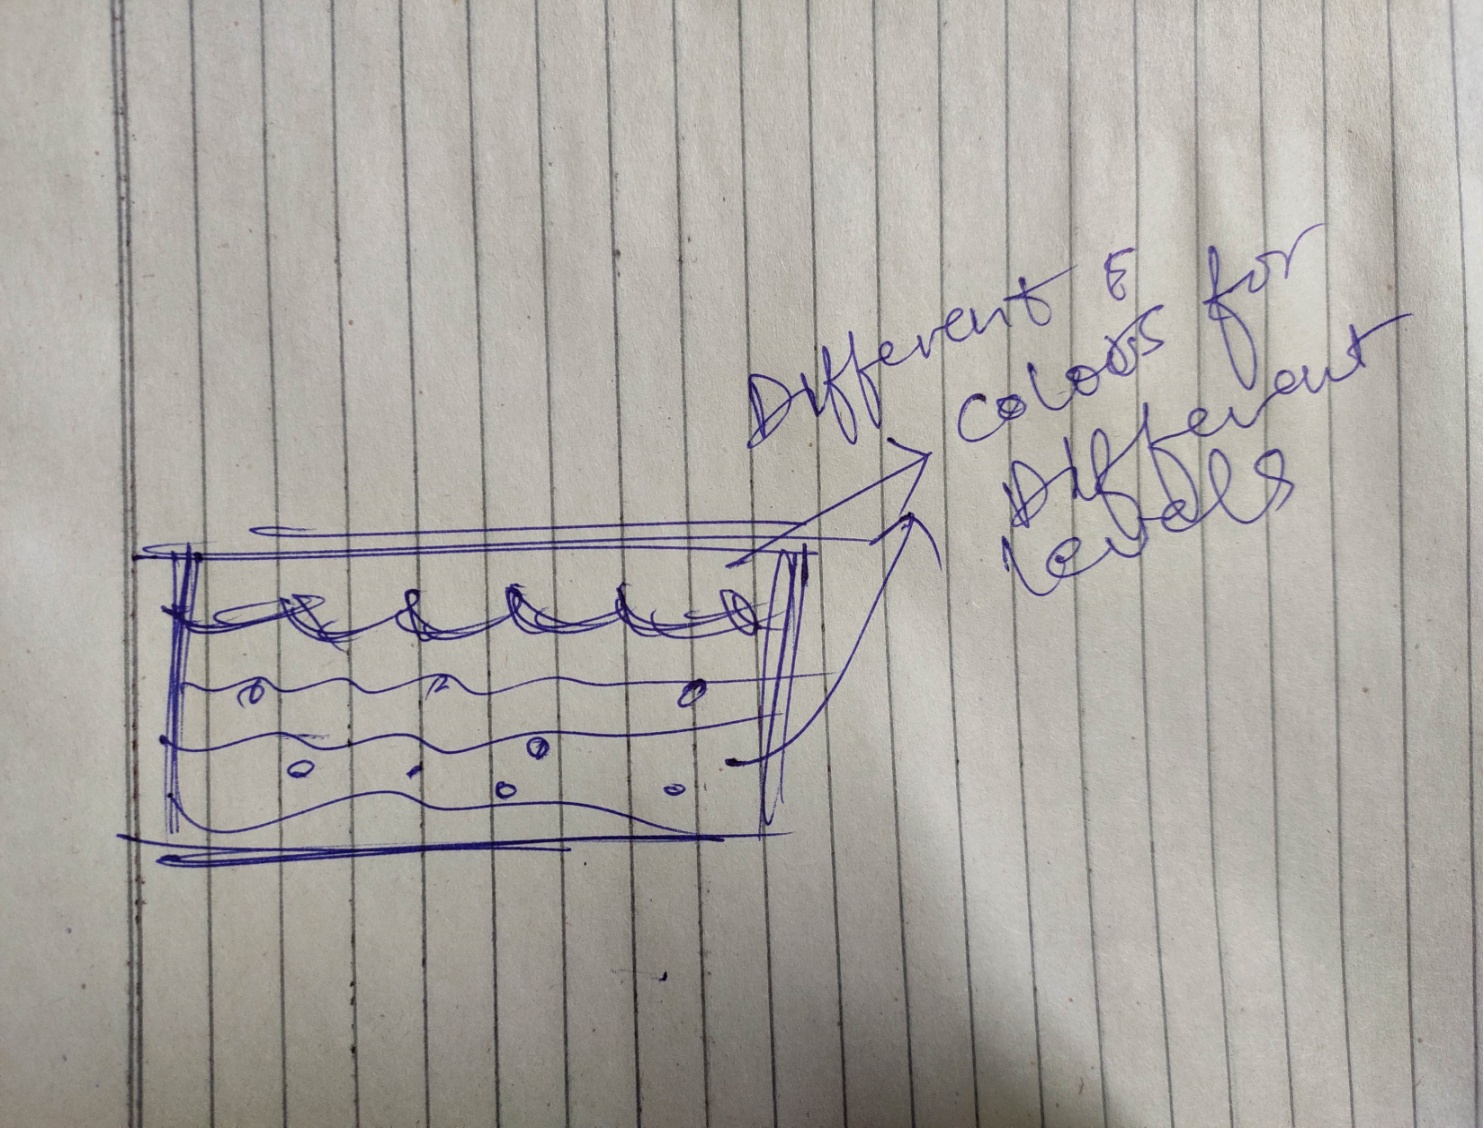 Different
colors for
Different
levels